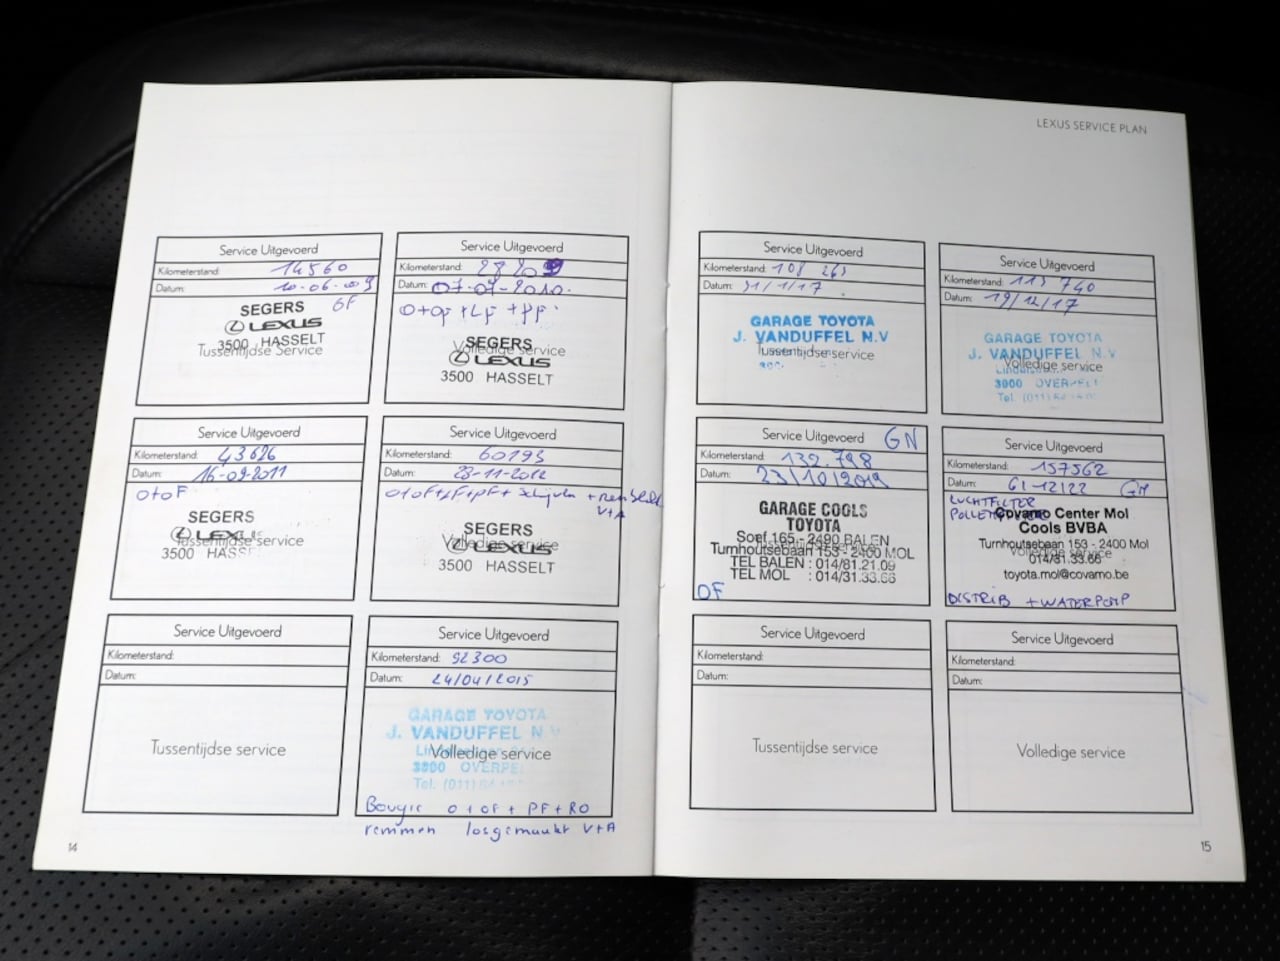 LEXUS SERVICE PLAN
Service Uitgevoerd
Kilometerstand: 14560
Datum: 10-06-09
SEGERS
LEXUS
3500 HASSELT
Tussentijdse Service
Service Uitgevoerd
Kilometerstand:
Datum: 07-07-2010.
O+OF+LF+PF.
SEGERS
Volledige service
LEXUS
3500 HASSELT
Service Uitgevoerd
Kilometerstand: 43626
Datum: 16-09-2011
O+OF
SEGERS
LEXUS
Tussentijdse service
3500 HASSE
Service Uitgevoerd
Kilometerstand: 60193
Datum: 28-11-2012
O+OF+LF+PF+ Schijven + remblokk
V+A
SEGERS
Volledige service
LEXUS
3500 HASSELT
Service Uitgevoerd
Kilometerstand:
Datum:
Tussentijdse service
Service Uitgevoerd
Kilometerstand: 92300
Datum: 24/04/2015
GARAGE TOYOTA
J. VANDUFFEL N.V
Volledige service
OVERPE
Tel. (011)
Bougie O+OF+PF+RO
remmen losgemaakt V+A
14
Service Uitgevoerd
Kilometerstand: 108 263
Datum: 31/1/17
GARAGE TOYOTA
J. VANDUFFEL N.V
Tussentijdse service
Service Uitgevoerd
Kilometerstand: 113 740
Datum: 19/12/17
GARAGE TOYOTA
J. VANDUFFEL N.V
Volledige service
3900 OVERPELT
Tel. (011)
Service Uitgevoerd GN
Kilometerstand: 132.798
Datum: 23/10/2019
GARAGE COOLS
TOYOTA
Soef 165 - 2490 BALEN
Turnhoutsebaan 153 - 2400 MOL
TEL BALEN : 014/81.21.09
TEL MOL : 014/31.33.66
OF
Service Uitgevoerd
Kilometerstand: 157562
Datum: 12/22
LUCHTFILTER
Covamo Center Mol
Cools BVBA
Turnhoutsebaan 153 - 2400 Mol
Volledige service
014/31.33.66
toyota.mol@covamo.be
DISTRIB + WATERPOMP
Service Uitgevoerd
Kilometerstand:
Datum:
Tussentijdse service
Service Uitgevoerd
Kilometerstand:
Datum:
Volledige service
15